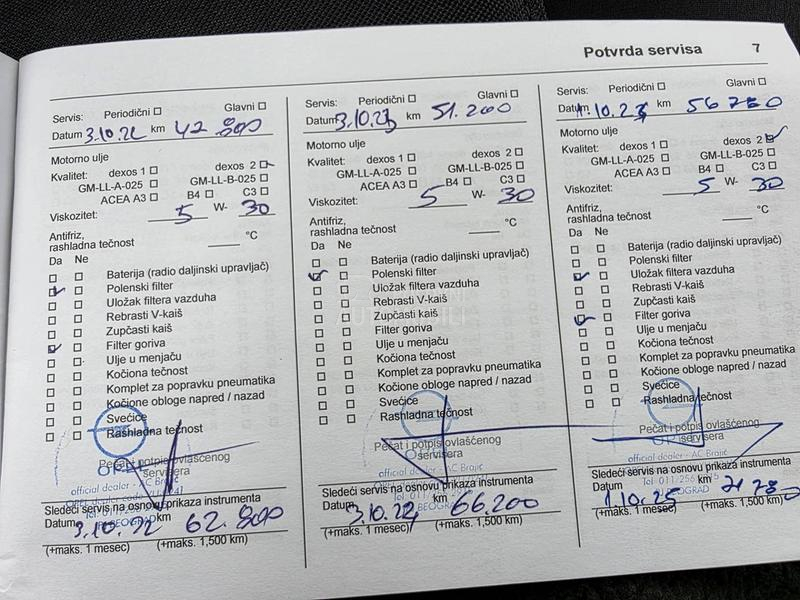 Potvrda servisa 7
Servis: Periodični Glavni
Datum 3.10.22 km 42 800
Motorno ulje
Kvalitet: dexos 1 dexos 2
GM-LL-A-025 GM-LL-B-025
ACEA A3 B4 C3
Viskozitet: 5 W- 30
Antifriz,
rashladna tečnost °C
Da Ne
Baterija (radio daljinski upravljač)
Polenski filter
Uložak filtera vazduha
Rebrasti V-kaiš
Zupčasti kaiš
Filter goriva
Ulje u menjaču
Kočiona tečnost
Komplet za popravku pneumatika
Kočione obloge napred / nazad
Svećice
Rashladna tečnost
Pečat i potpis ovlašćenog
servisera
official dealer - AC Brajić
Sledeći servis na osnovu prikaza instrumenta
Datum km 62.800
(+maks. 1 mesec) (+maks. 1,500 km)
Servis: Periodični Glavni
Datum 3.10.23 km 51.200
Motorno ulje
Kvalitet: dexos 1 dexos 2
GM-LL-A-025 GM-LL-B-025
ACEA A3 B4 C3
Viskozitet: 5 W- 30
Antifriz,
rashladna tečnost °C
Da Ne
Baterija (radio daljinski upravljač)
Polenski filter
Uložak filtera vazduha
Rebrasti V-kaiš
Zupčasti kaiš
Filter goriva
Ulje u menjaču
Kočiona tečnost
Komplet za popravku pneumatika
Kočione obloge napred / nazad
Svećice
Rashladna tečnost
Pečat i potpis ovlašćenog
servisera
official dealer - AC Brajić
Sledeći servis na osnovu prikaza instrumenta
Datum 3.10.24 km 66.200
(+maks. 1 mesec) (+maks. 1,500 km)
Servis: Periodični Glavni
Datum km 56 780
Motorno ulje
Kvalitet: dexos 1 dexos 2
GM-LL-A-025 GM-LL-B-025
ACEA A3 B4 C3
Viskozitet: 5 W- 30
Antifriz,
rashladna tečnost °C
Da Ne
Baterija (radio daljinski upravljač)
Polenski filter
Uložak filtera vazduha
Rebrasti V-kaiš
Zupčasti kaiš
Filter goriva
Ulje u menjaču
Kočiona tečnost
Komplet za popravku pneumatika
Kočione obloge napred / nazad
Svećice
Rashladna tečnost
Pečat i potpis ovlašćenog
servisera
official dealer - AC Brajić
Sledeći servis na osnovu prikaza instrumenta
Datum 1.10.25 km 71 780
(+maks. 1 mesec) (+maks. 1,500 km)